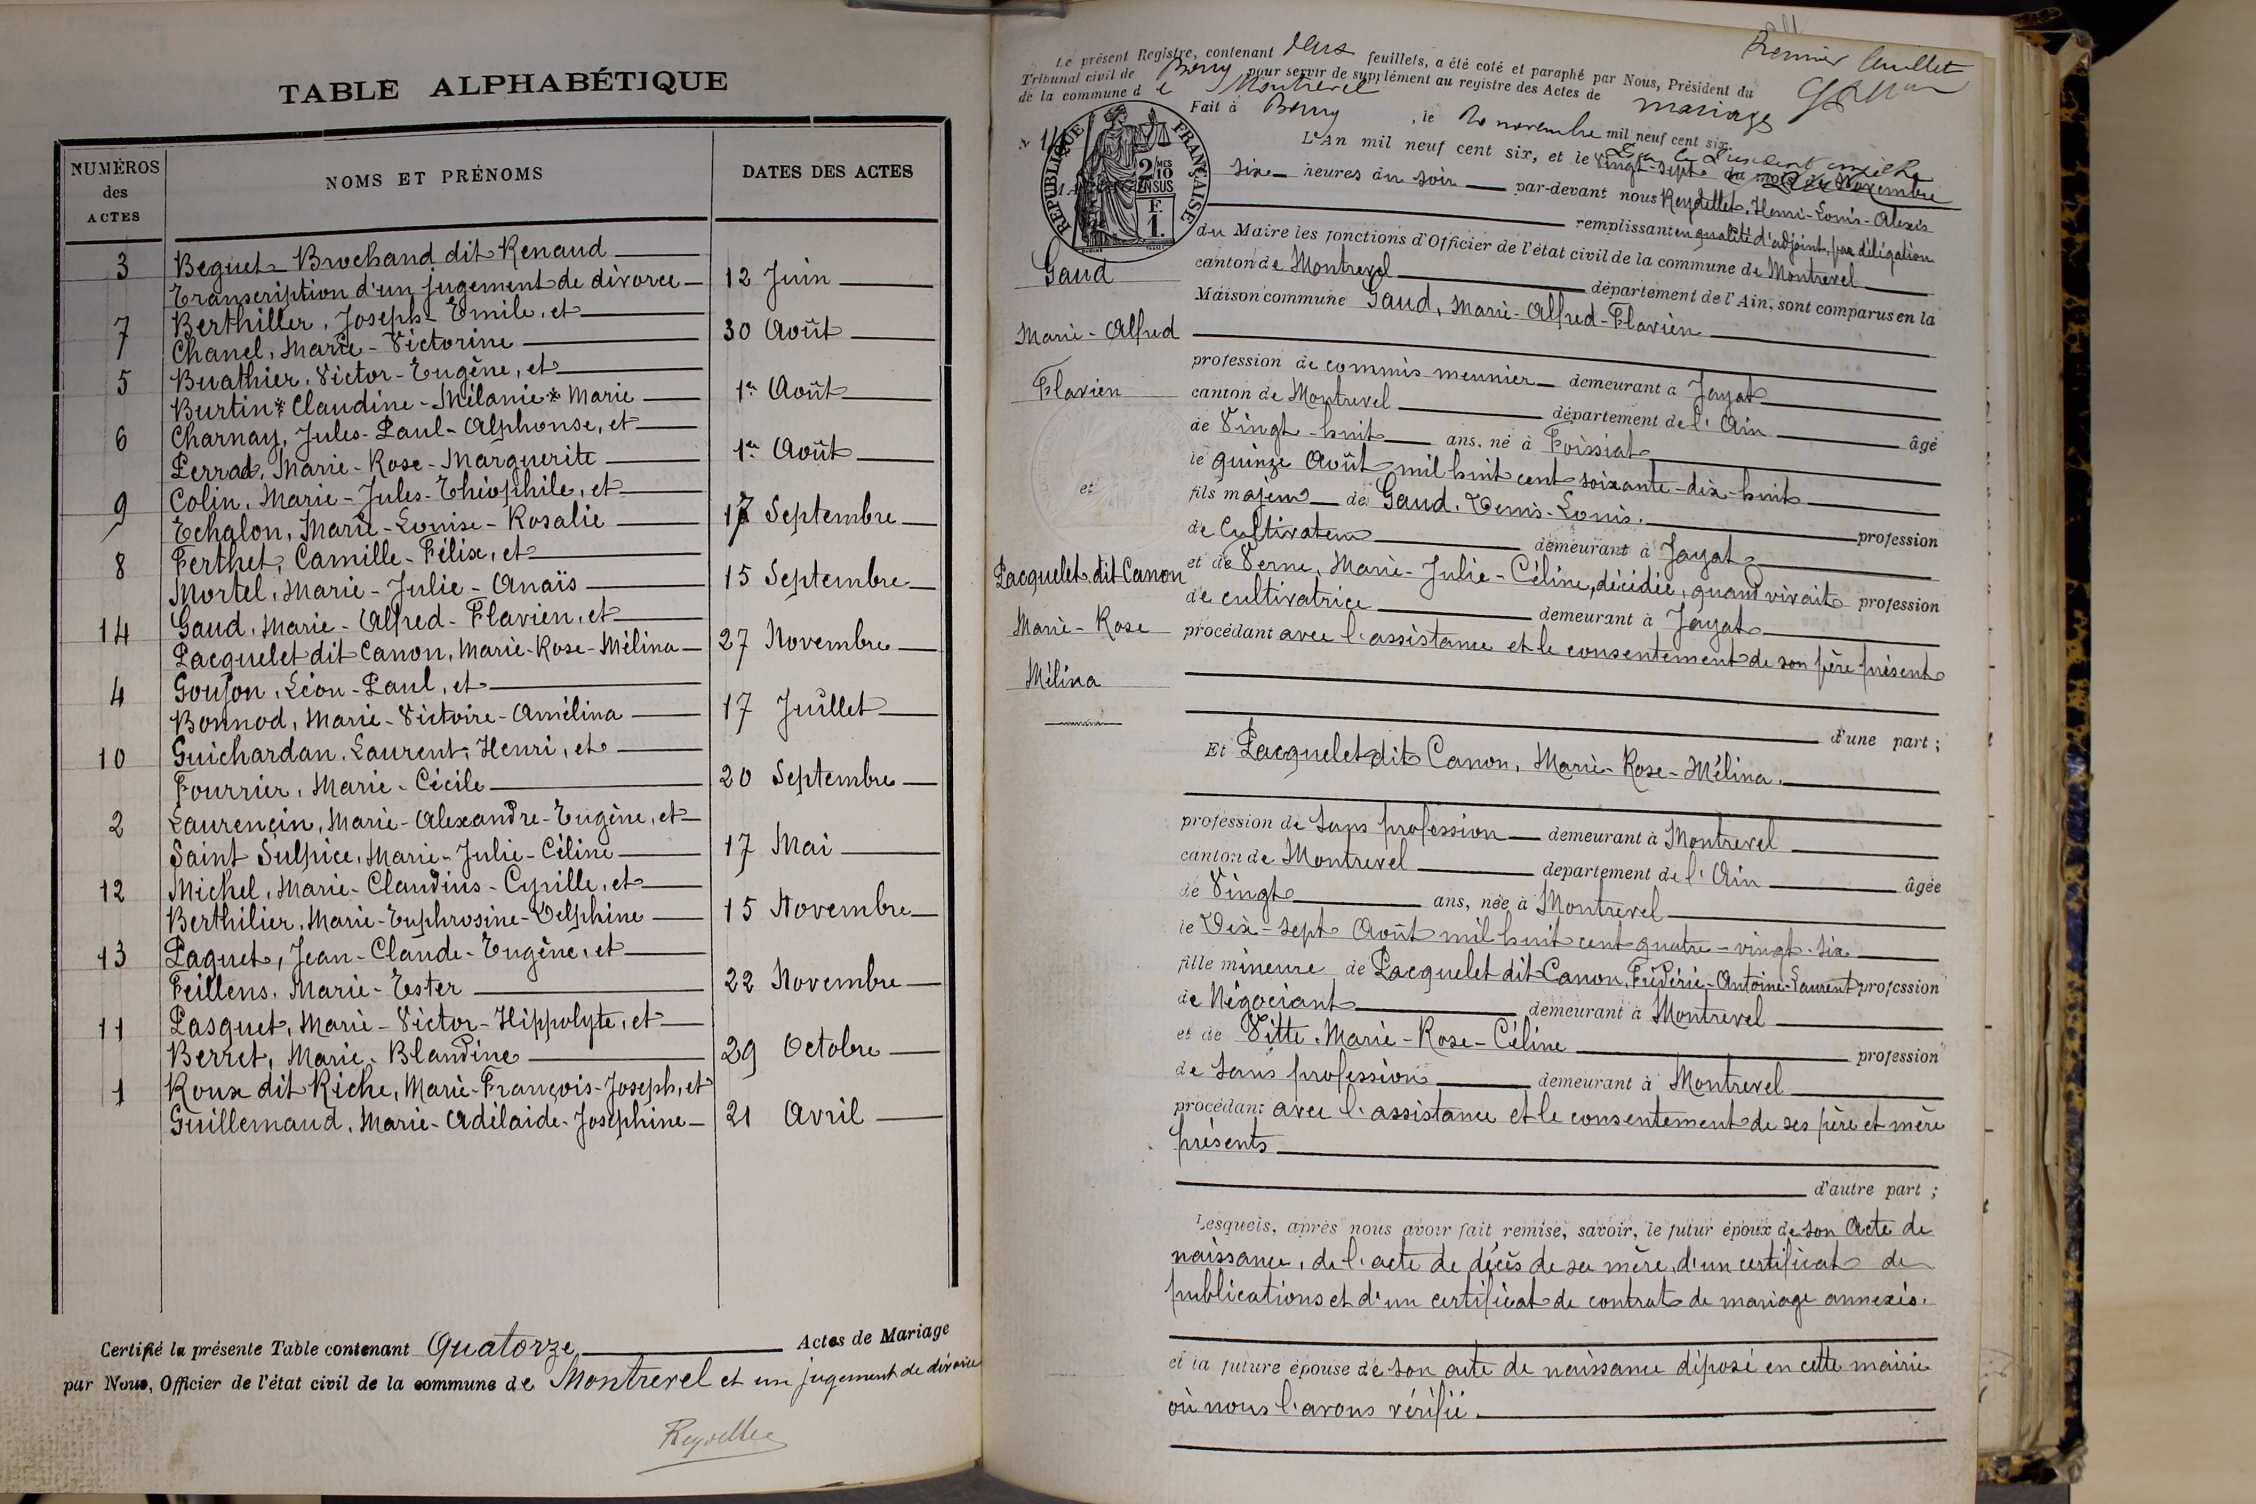 TABLE ALPHABÉTIQUE
NUMÉROS des ACTES
NOMS ET PRÉNOMS
DATES DES ACTES
3 Beguet Brochand dit Renaud
Transcription d'un jugement de divorce 12 Juin
7 Berthiller, Joseph-Emile, et
Chanel, Marie-Victorine 30 Août
5 Buathier, Victor-Eugène, et
Burtin * Claudine-Mélanie * Marie 1er Août
6 Charnay, Jules-Paul-Alphonse, et
Perrad, Marie-Rose-Marguerite 1er Août
9 Colin, Marie-Jules-Théophile, et
Echalon, Marie-Louise-Rosalie 17 Septembre
8 Ferthet, Camille-Félix, et
Mortel, Marie-Julie-Anaïs 15 Septembre
14 Gaud, Marie-Alfred-Flavien, et
Pacquelet dit Canon, Marie-Rose-Mélina 27 Novembre
4 Goujon, Léon-Paul, et
Bonnod, Marie-Victoire-Amélina 17 Juillet
10 Guichardan, Laurent, Henri, et
Fourrier, Marie-Cécile 20 Septembre
2 Laurençin, Marie-Alexandre-Eugène, et
Saint Sulpice, Marie-Julie-Céline 17 Mai
12 Michel, Marie-Claudius-Cyrille, et
Berthilier, Marie-Euphrosine-Delphine 15 Novembre
13 Paquet, Jean-Claude-Eugène, et
Feillens, Marie-Ester 22 Novembre
11 Pasquet, Marie-Victor-Hippolyte, et
Berret, Marie-Blandine 29 Octobre
1 Roux dit Riche, Marie-François-Joseph, et
Guillemaud, Marie-Adélaide-Joséphine 21 Avril
Certifié la présente Table contenant Quatorze Actes de Mariage
par Nous, Officier de l'état civil de la commune de Montrevel et un jugement de divorce
Reydellet
Premier feuillet
Le présent Registre, contenant deux feuillets, a été coté et paraphé par Nous, Président du
Tribunal civil de Bourg, pour servir de supplément au registre des Actes de mariage
de la commune de Montrevel
Fait à Bourg, le 20 novembre mil neuf cent six.
N° 14
RÉPUBLIQUE FRANÇAISE
2 MES 10 EN SUS
F. 1.
L'An mil neuf cent six, et le Vingt-sept du mois de Novembre
six heures du soir par-devant nous Reydellet, Henri-Louis-Alexis
remplissant en qualité d'adjoint, par délégation
du Maire les fonctions d'Officier de l'état civil de la commune de Montrevel
canton de Montrevel département de l'Ain, sont comparus en la
Maison commune Gaud, Marie-Alfred-Flavien
profession de commis meunier demeurant à Jayat
canton de Montrevel département de l'Ain âgé
de Vingt-huit ans, né à Foissiat
le quinze Août mil huit cent soixante-dix-huit
fils majeur de Gaud, Denis-Louis, profession
de Cultivateur demeurant à Jayat
et de Verne, Marie-Julie-Céline, décédée, quand vivait profession
de cultivatrice demeurant à Jayat
procédant avec l'assistance et le consentement de son père présent
d'une part ;
Gaud
Marie-Alfred
Flavien
et
Pacquelet dit Canon
Marie-Rose
Mélina
Et Pacquelet dit Canon, Marie-Rose-Mélina,
profession de sans profession demeurant à Montrevel
canton de Montrevel département de l'Ain âgée
de Vingt ans, née à Montrevel
le Dix-sept Août mil huit cent quatre-vingt-six
fille mineure de Pacquelet dit Canon, Frédéric-Antoine-Laurent profession
de Négociant demeurant à Montrevel
et de Vitte, Marie-Rose-Céline profession
de sans profession demeurant à Montrevel
procédant avec l'assistance et le consentement de ses père et mère
présents
d'autre part ;
Lesquels, après nous avoir fait remise, savoir, le futur époux de son Acte de
naissance, de l'acte de décès de sa mère, d'un certificat de
publications et d'un certificat de contrat de mariage annexés.
et la future épouse de son acte de naissance déposé en cette mairie
où nous l'avons vérifié.